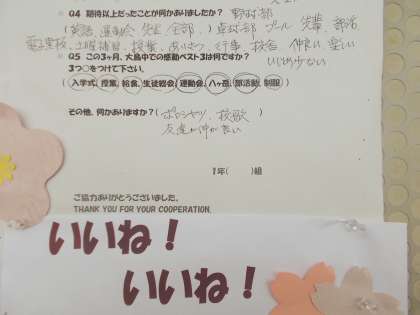 Q4 期待以上だったことが何かありましたか？ 野球部
(英語、運動会、先生、全部、) 卓球部 プール 先輩、部活
電子黒板、土曜補習、授業、あいさつ、行事、校舎、仲良い、楽しい
いじめ少ない
Q5 この3ヶ月、大鳥中での感動ベスト3は何ですか？
3つ○をつけて下さい。
(入学式、授業、給食、生徒総会、運動会、八ヶ岳、部活動、制服)
その他、何かありますか？(ポロシャツ、校歌 )
友達が仲が良い
1年( )組
ご協力ありがとうございました。
THANK YOU FOR YOUR COOPERATION.
いいね！
いいね！